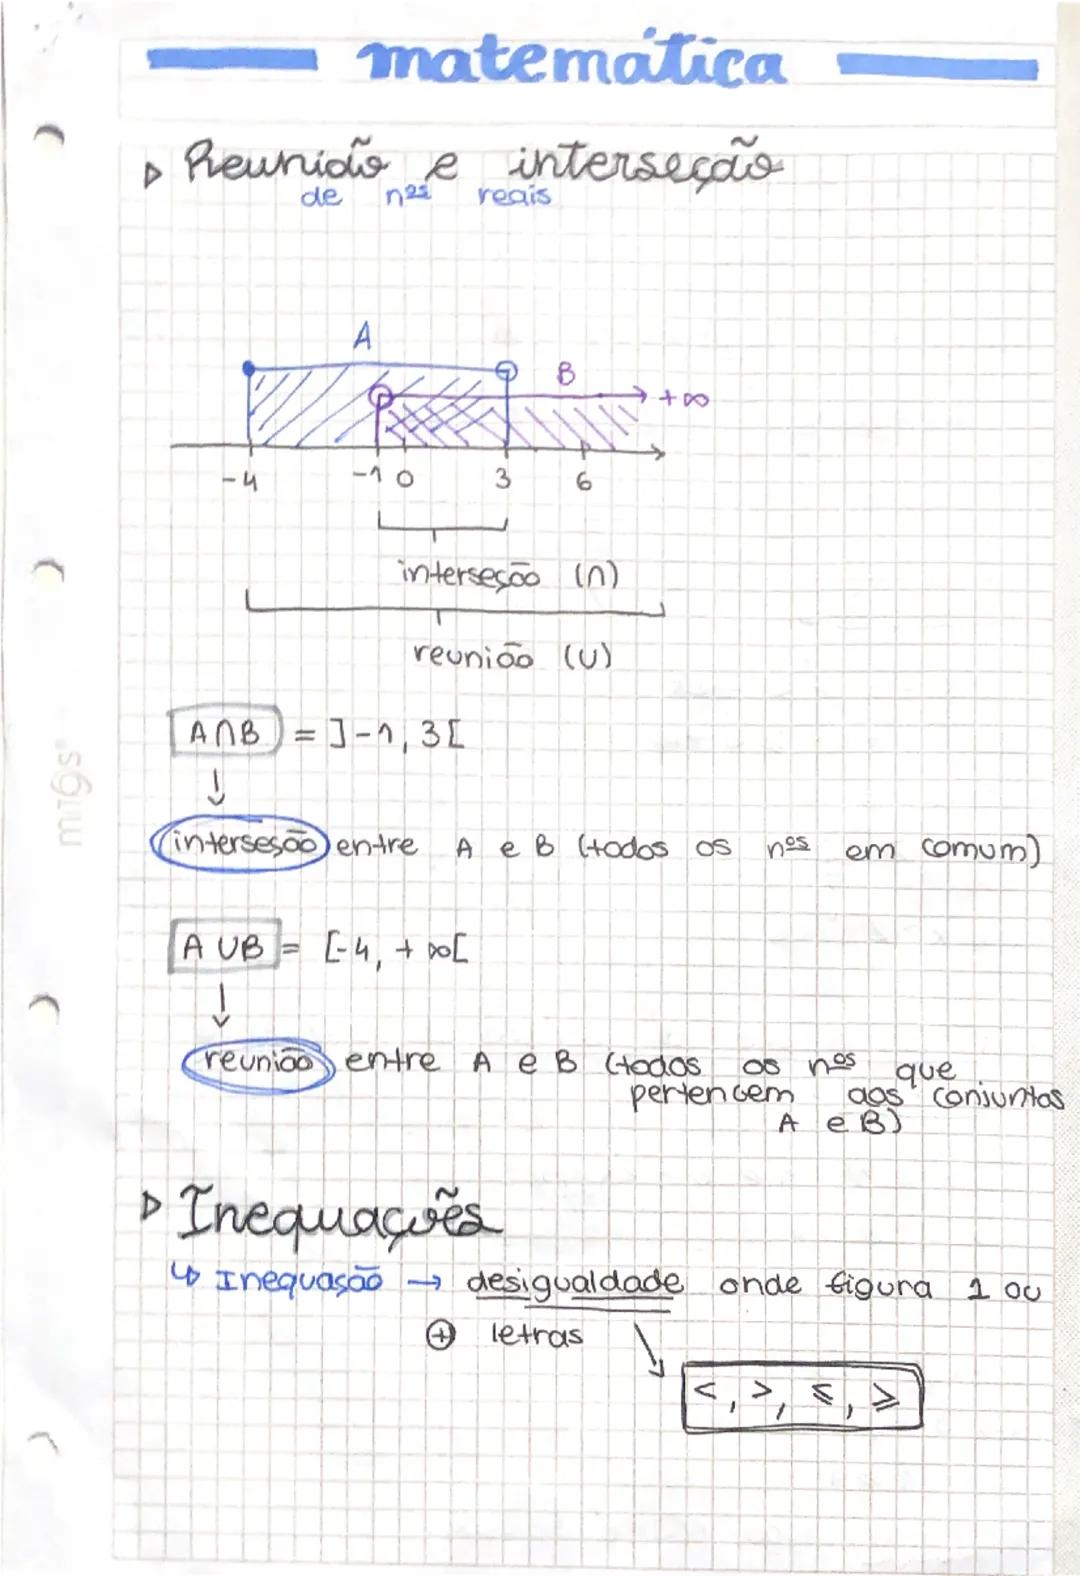 matemática
▷ Reunião e interseção
de nos reais
A
B
+∞
-4 -1 0 3 6
interseção (∩)
reunião (∪)
A∩B = ]-1, 3[
↓
interseção entre A e B (todos os nos em comum)
A∪B = [-4, +∞[
↓
reunião entre A e B (todos os nos que
pertencem aos conjuntos
A e B)
▷ Inequações
↳ Inequação → desigualdade onde figura 1 ou
⊕ letras
<, >, ⩽, ⩾
miGs